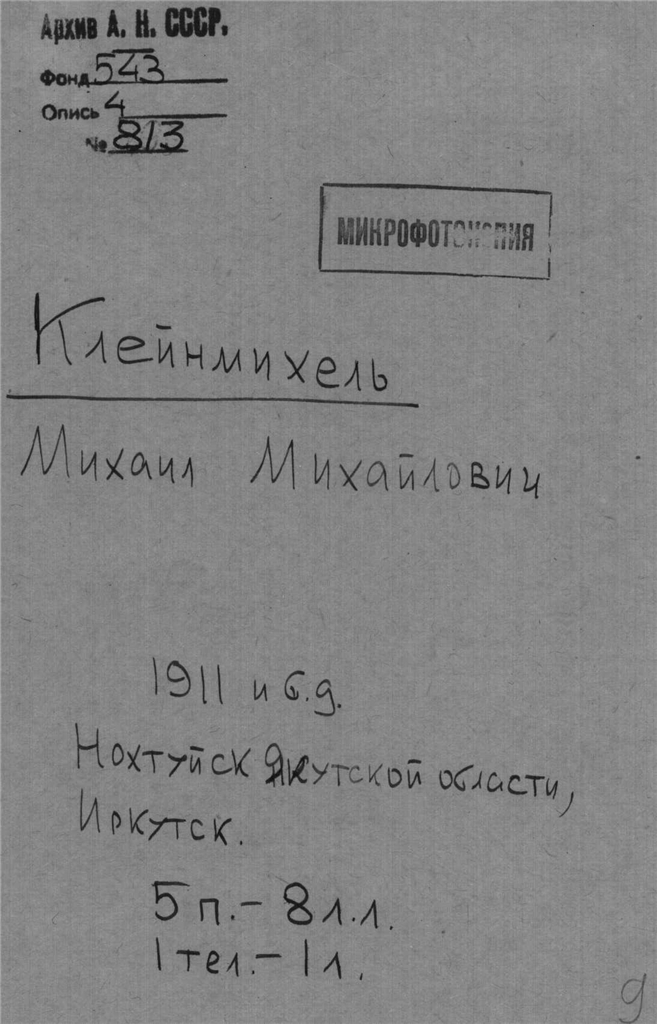 Архив А. Н. СССР.
Фонд 543
Опись 4
№ 813
МИКРОФОТОКОПИЯ
Клейнмихель
Михаил Михайлович
1911 и б.д.
Нохтуйск Якутской области,
Иркутск.
5 п. – 8 л.л.
1 тел. – 1 л.
9